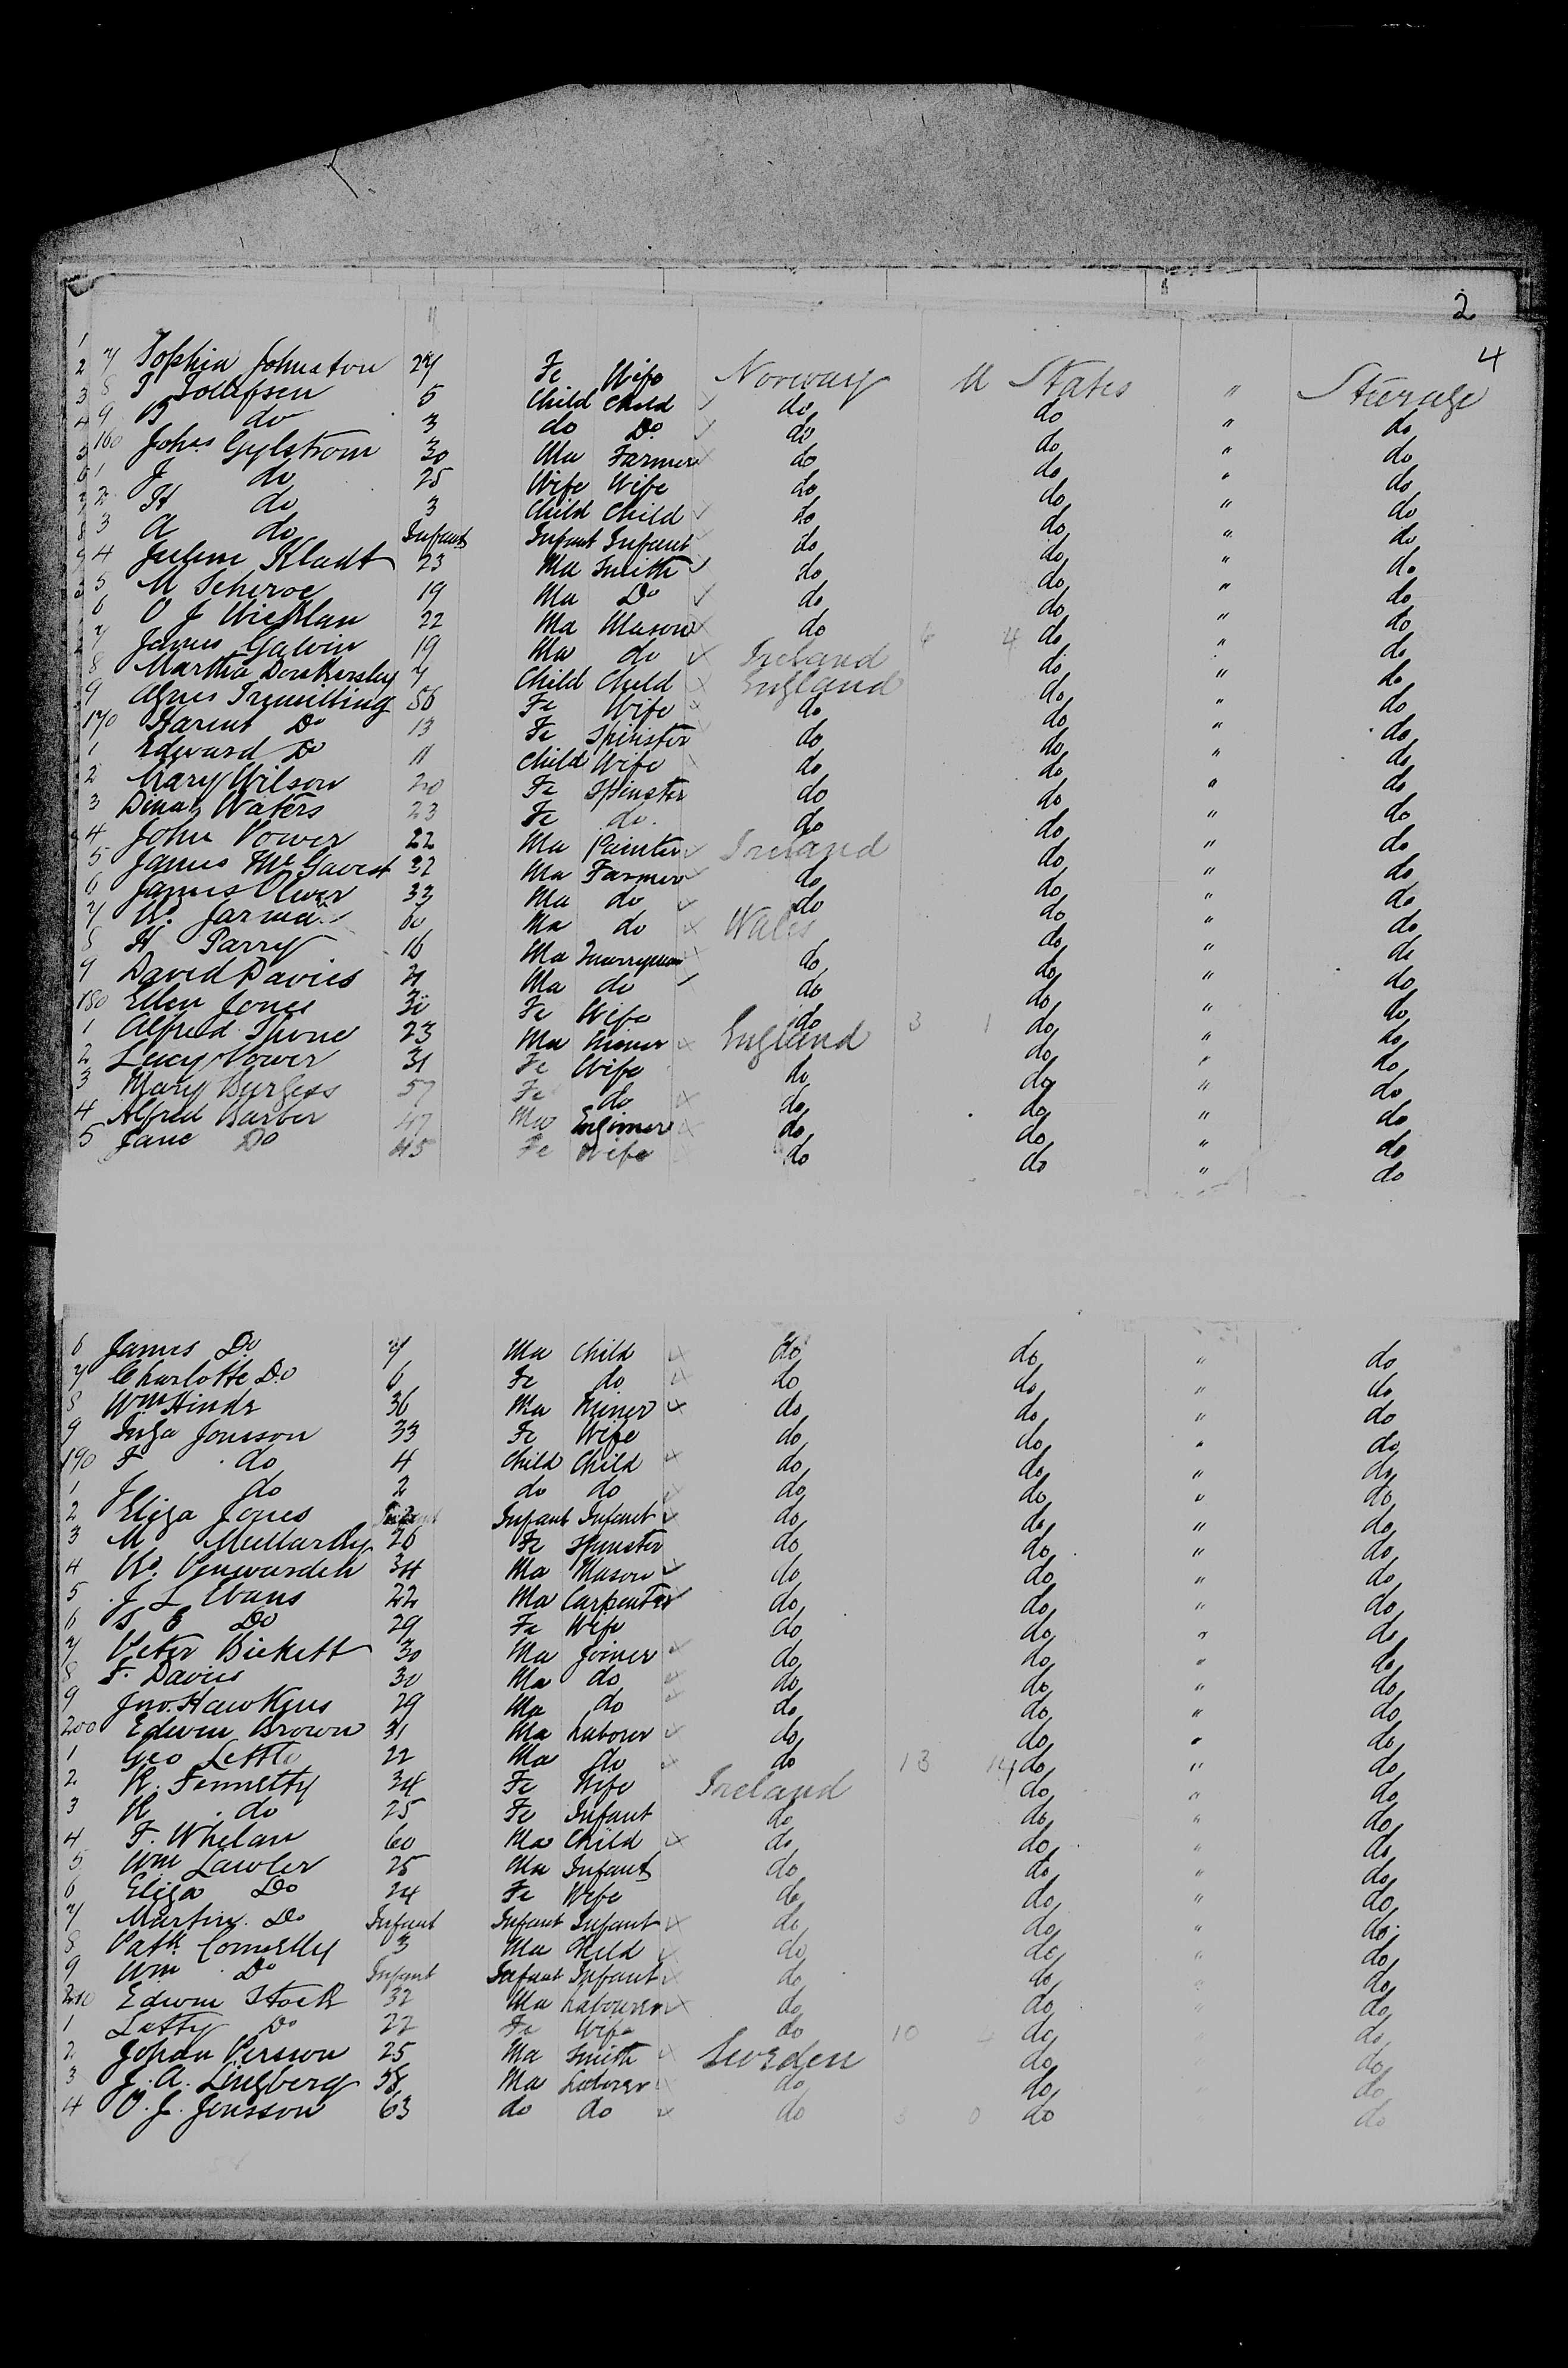 2
4
7 Sophia Johnston 27 Fe Wife Norway U States " Steerage
8 T Tollefsen 5 Child Child do do " do
9 B do 3 do Do do do " do
160 Johas Gylstrom 30 Ma Farmer do do " do
1 J do 25 Wife Wife do do " do
2 H do 3 Child Child do do " do
3 A do Infant Infant Infant do do " do
4 Julene Kladt 23 Ma Smith do do " do
5 M Scheroe 19 Ma Do do do " do
6 O J 22 Ma Mason do do " do
7 James Galvin 19 Ma do Ireland do " do
8 Martha 7 Child Child England do " do
9 Agnes 56 Fe Wife do do " do
170 Do 13 Fe Spinster do do " do
1 Edward Do 11 Child Wife do do " do
2 Mary Wilson 20 Fe Spinster do do " do
3 Dinah Waters 23 Fe do do do " do
4 John Power 22 Ma Painter Ireland do " do
5 James Mc 32 Ma Farmer do do " do
6 James Oliver 33 Ma do do do " do
7 Wm Jarman 60 Ma do Wales do " do
8 H Parry 16 Ma Quarryman do do " do
9 David Davies 21 Ma do do do " do
180 Ellen Jones 30 Fe Wife do do " do
1 Alfred Shone 23 Ma Miner England do " do
2 Lucy Power 31 Fe Wife do do " do
3 Mary Burgess 57 Fe do do do " do
4 Alfred Barber 47 Ma Engineer do do " do
5 Jane Do 45 Fe Wife do do " do
6 James Do 7 Ma Child do do " do
7 Charlotte Do 6 Fe do do do " do
8 Wm Hinds 36 Ma Miner do do " do
9 Inga Jonsson 33 Fe Wife do do " do
190 F do 4 Child Child do do " do
1 J do 2 do do do do " do
2 Eliza Jones Infant Infant Infant do do " do
3 M Mullarky 26 Fe Spinster do do " do
4 Wm Penwarden 34 Ma Mason do do " do
5 J L Evans 22 Ma Carpenter do do " do
6 S E Do 29 Fe Wife do do " do
7 Peter Bickett 30 Ma Joiner do do " do
8 F. Davies 30 Ma do do do " do
9 Jno. Hawkins 29 Ma do do do " do
200 Edwin Brown 31 Ma Laborer do do " do
1 Geo Little 22 Ma do do 13 14 do " do
2 R. Fennelly 24 Fe Wife Ireland do " do
3 R do 25 Fe Infant do do " do
4 F. Whelan 60 Ma Child do do " do
5 Wm Lawler 25 Ma Infant do do " do
6 Eliza Do 24 Fe Wife do do " do
7 Martin Do Infant Infant Infant do do " do
8 Patk Connelly 3 Ma Child do do " do
9 Wm Do Infant Infant Infant do do " do
210 Edwin Stock 32 Ma Labourer do do " do
1 Letty Do 22 Fe Wife do 10 do do
2 Johan Persson 25 Ma Smith Sweden do do
3 J. A. Lingberg 38 Ma do do do
4 O. J. Jonsson 63 do do do 3 0 do do